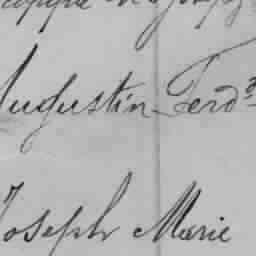 Augustin Ferd
Joseph Marie